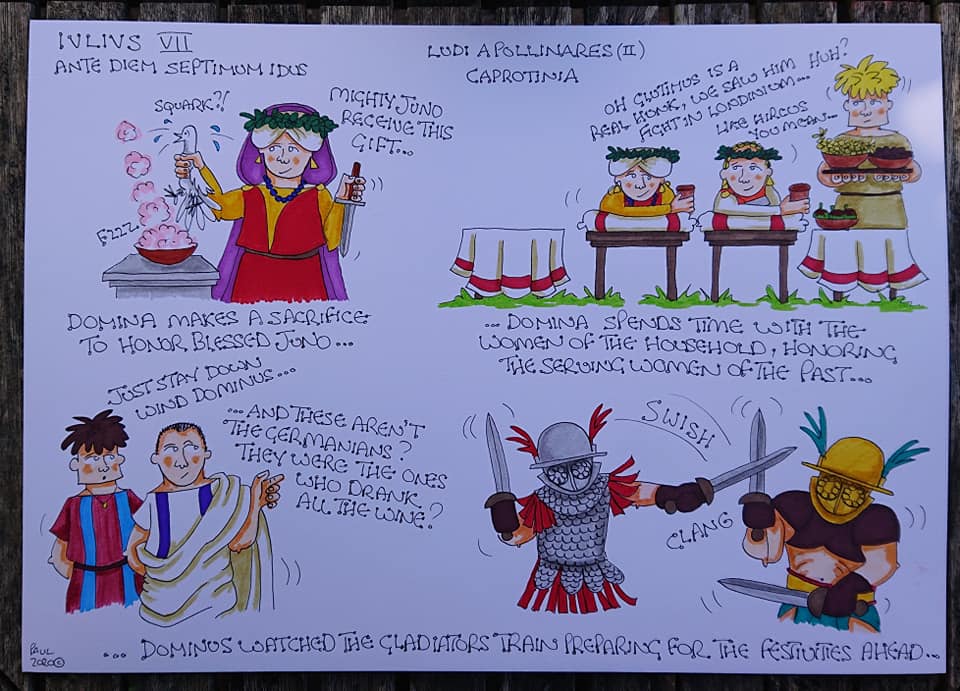 IVLIVS VII
ANTE DIEM SEPTIMUM IDUS
LUDI APOLLINARES (II)
CAPROTINIA
SQUARK?!
MIGHTY JUNO
RECEIVE THIS
GIFT...
FZZZ
OH GLUTIMUS IS A
REAL HUNK, WE SAW HIM
FIGHT IN LONDINIUM...
HUH?
LIKE HIRCUS
YOU MEAN...
DOMINA MAKES A SACRIFICE
TO HONOR BLESSED JUNO...
...DOMINA SPENDS TIME WITH THE
WOMEN OF THE HOUSEHOLD, HONORING
THE SERVING WOMEN OF THE PAST...
JUST STAY DOWN
WIND DOMINUS...
...AND THESE AREN'T
THE GERMANIANS?
THEY WERE THE ONES
WHO DRANK
ALL THE WINE?
SWISH
CLANG
PAUL
2020©
... DOMINUS WATCHED THE GLADIATORS TRAIN PREPARING FOR THE FESTIVITIES AHEAD...